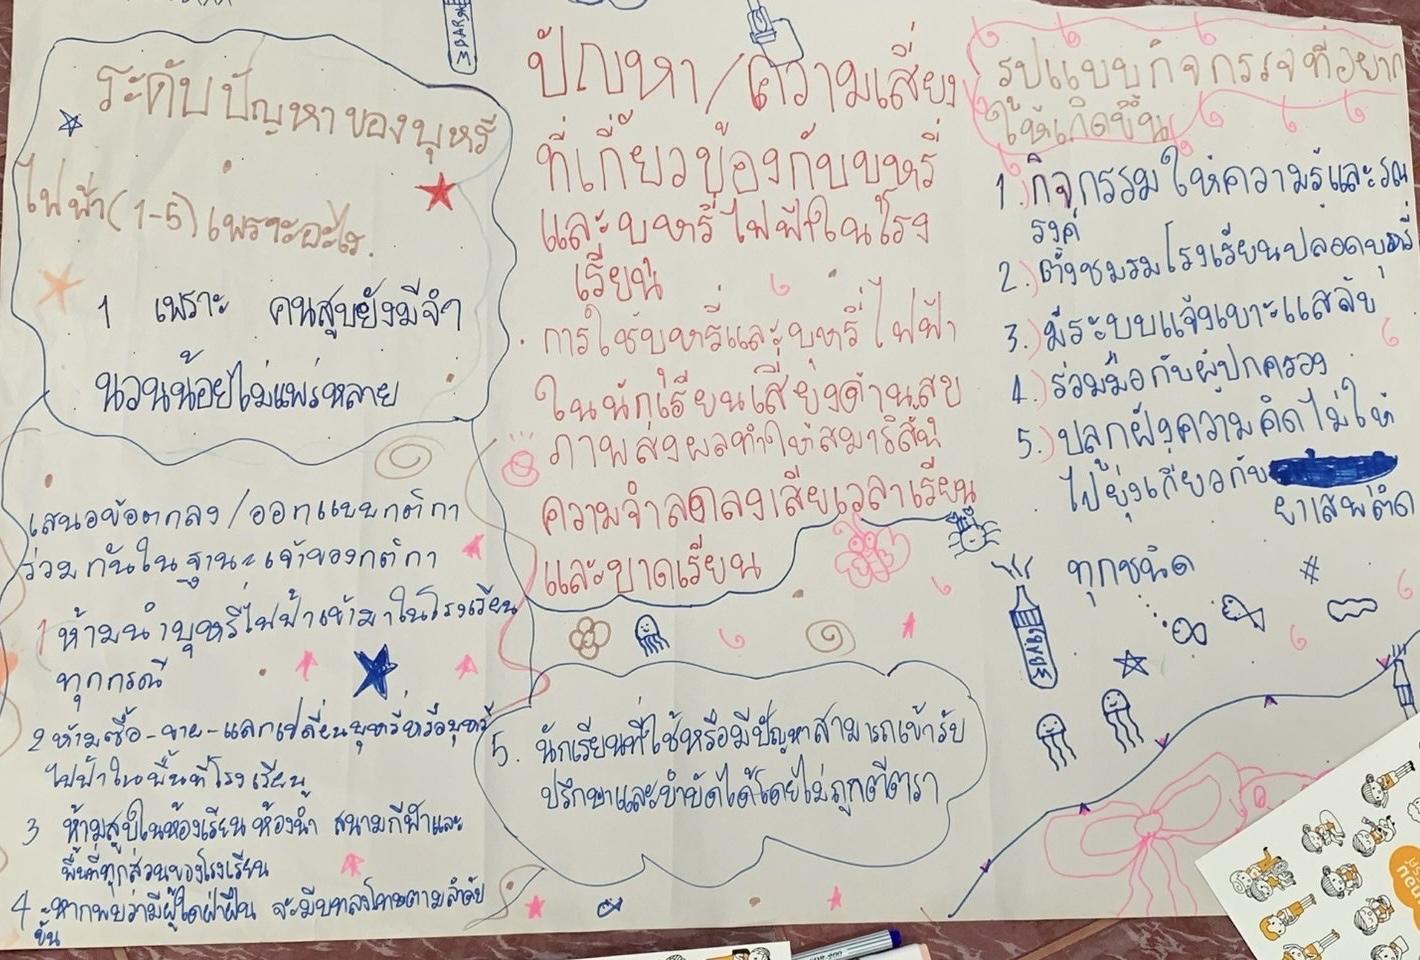 ระดับปัญหาของบุหรี่
ไฟฟ้า (1-5) เพราะอะไร.
1 เพราะ คนสูบยังมีจำ
นวนน้อยไม่แพร่หลาย
เสนอข้อตกลง/ออกแบบกติกา
ร่วมกันในฐานะเจ้าของกติกา
1 ห้ามนำบุหรี่ไฟฟ้าเข้ามาในโรงเรียน
ทุกกรณี
2 ห้ามซื้อ-ขาย-แลกเปลี่ยนบุหรี่หรือบุหรี่
ไฟฟ้าในพื้นที่โรงเรียน
3 ห้ามสูบในห้องเรียน ห้องน้ำ สนามกีฬาและ
พื้นที่ทุกส่วนของโรงเรียน
4 หากพบว่ามีผู้ใดฝ่าฝืน จะมีบทลงโทษตามลำดับ
ขั้น
ปัญหา/ความเสี่ยง
ที่เกี่ยวข้องกับบุหรี่
และบุหรี่ไฟฟ้าในโรง
เรียน
การใช้บุหรี่และบุหรี่ไฟฟ้า
ในนักเรียนเสี่ยงด้านสุข
ภาพส่งผลทำให้สมาธิสั้น
ความจำลดลงเสียเวลาเรียน
และขาดเรียน
5. นักเรียนที่ใช้หรือมีปัญหาสามารถเข้ารับ
ปรึกษาและบำบัดได้โดยไม่ถูกตีตรา
รูปแบบกิจกรรจที่อยาก
ให้เกิดขึ้น
1.) กิจกรรมให้ความรู้และรณ
รงค์
2.) ตั้งชมรมโรงเรียนปลอดบุหรี่
3.) มีระบบแจ้งเบาะแสลับ
4.) ร่วมมือกับผู้ปกครอง
5.) ปลูกฝังความคิดไม่ให้
ไปยุ่งเกี่ยวกับ
ยาเสพติด
ทุกชนิด
#